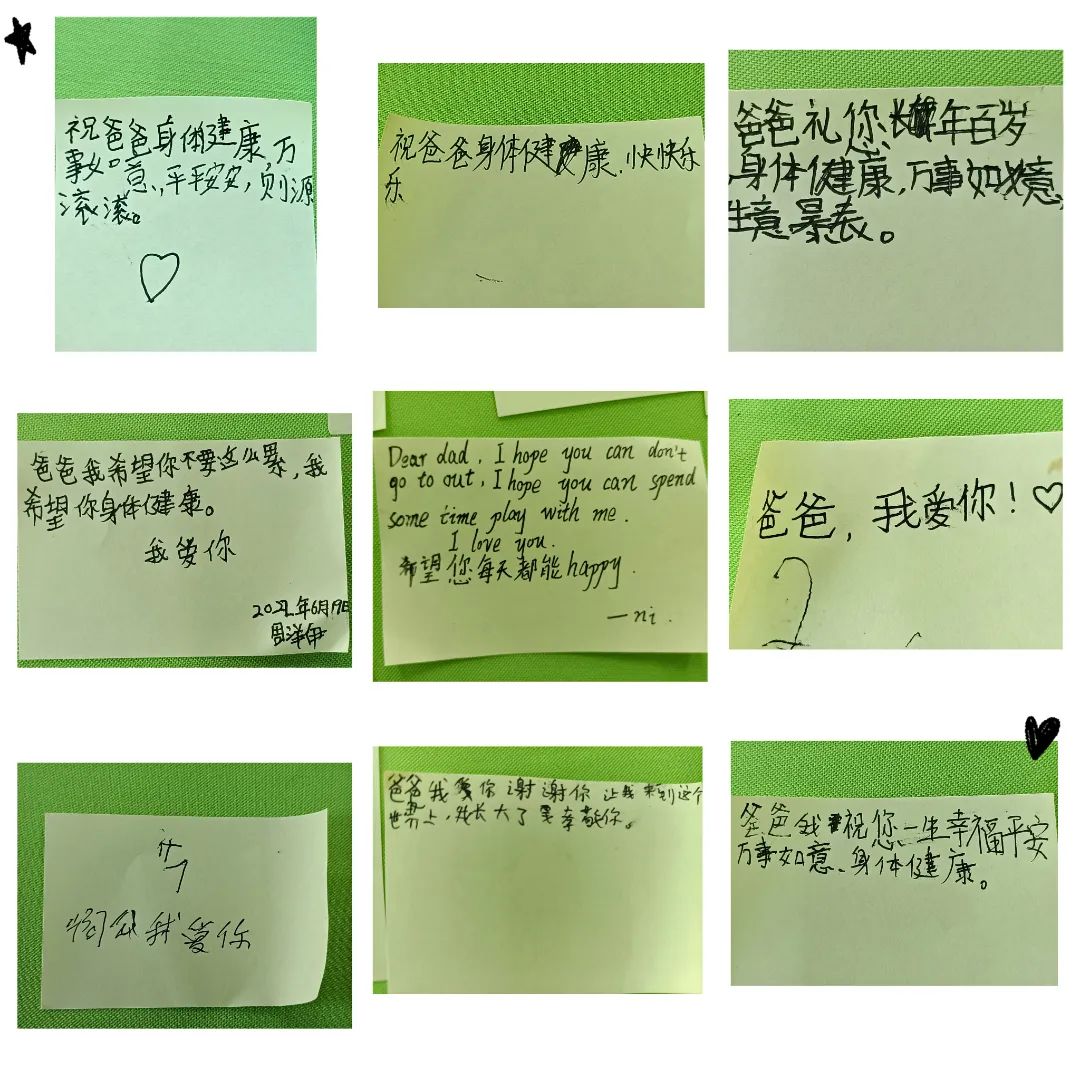 祝爸爸身体健康,万
事如意,平平安安,则源
滚滚。
祝爸爸身体健康,快快乐
乐
爸爸礼您长年百岁
身体健康,万事如意,
生意暴表。
爸爸我希望你不要这么累,我
希望你身体健康。
我爱你
2022年6月19日
Dear dad, I hope you can don't
go to out, I hope you can spend
some time play with me.
I love you.
希望您每天都能happy.
—ni.
爸爸,我爱你!
2
我爱你
爸爸我爱你谢谢你 让我来到这个
世界上,我长大了要孝敬你。
爸爸我祝您一生幸福平安
万事如意、身体健康。